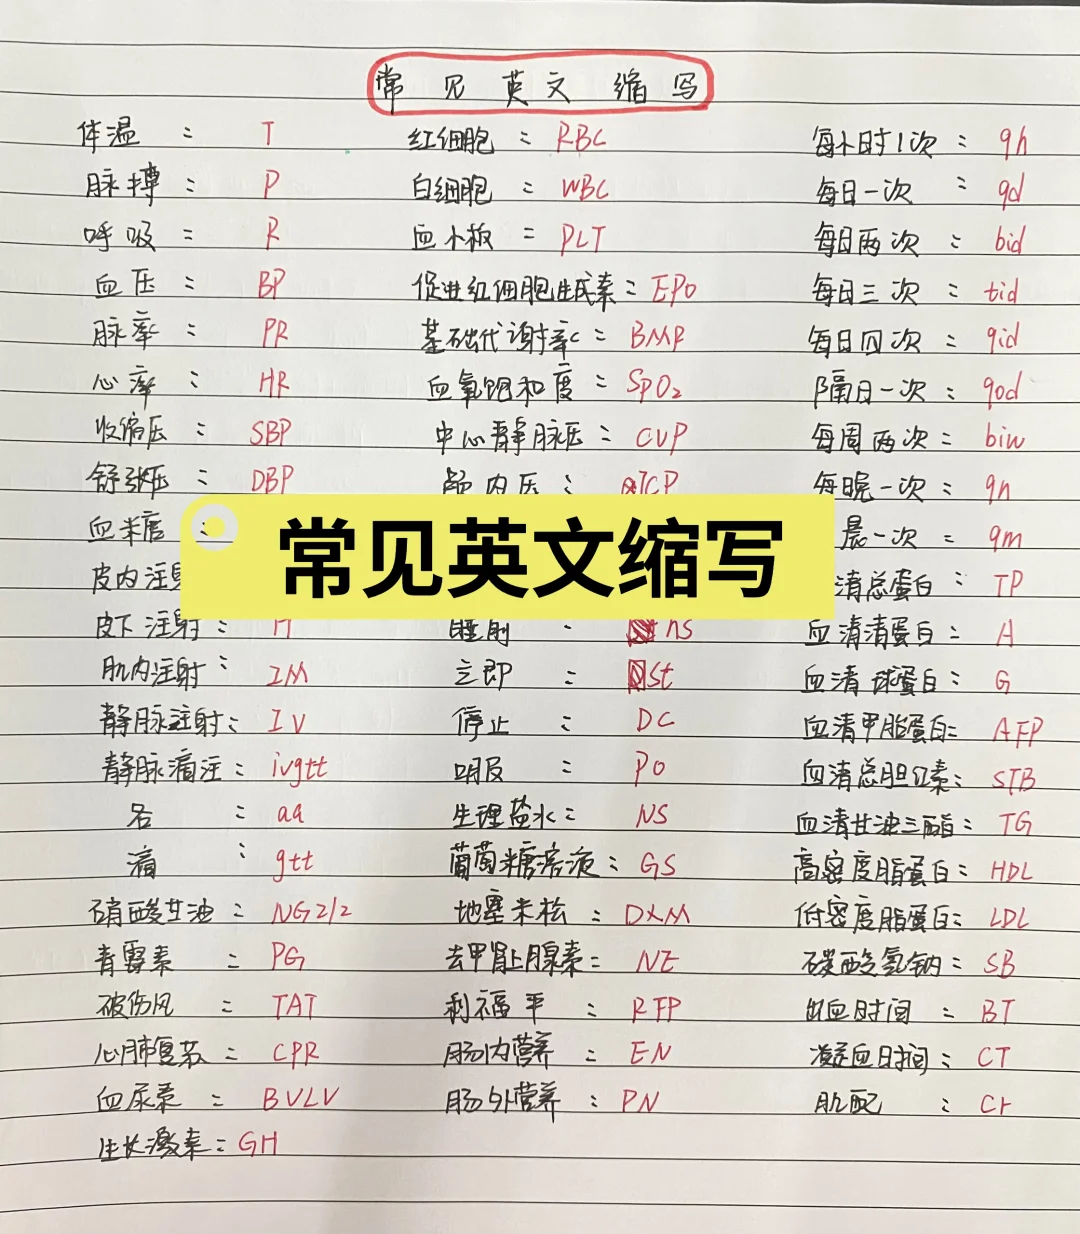 常见英文缩写
体温： T
脉搏： P
呼吸： R
血压： BP
脉率： PR
心率： HR
收缩压： SBP
舒张压： DBP
血糖：
皮内注射
皮下注射： H
肌内注射： IM
静脉注射： IV
静脉滴注： ivgtt
各： aa
滴： gtt
硝酸甘油：
青霉素： PG
破伤风： TAT
心肺复苏： CPR
血尿素： BVLV
生长激素： GH
红细胞： RBC
白细胞： WBC
血小板： PLT
促进红细胞生成素： EPO
基础代谢率： BMR
血氧饱和度： SpO₂
中心静脉压： CVP
颅内压： ICP
常见英文缩写
睡前： ns
立即： st
停止： DC
明服： PO
生理盐水： NS
葡萄糖溶液： GS
地塞米松： DXM
去甲肾上腺素： NE
利福平： RFP
肠内营养： EN
肠外营养： PN
每小时1次： qh
每日一次： qd
每日两次： bid
每日三次： tid
每日四次： qid
隔日一次： qod
每周两次： biw
每晚一次： qn
晨一次： qm
清总蛋白： TP
血清清蛋白： A
血清球蛋白： G
血清甲脂蛋白： AFP
血清总胆红素： STB
血清甘油三酯： TG
高密度脂蛋白： HDL
低密度脂蛋白： LDL
碳酸氢钠： SB
出血时间： BT
凝血时间： CT
肌酐： Cr